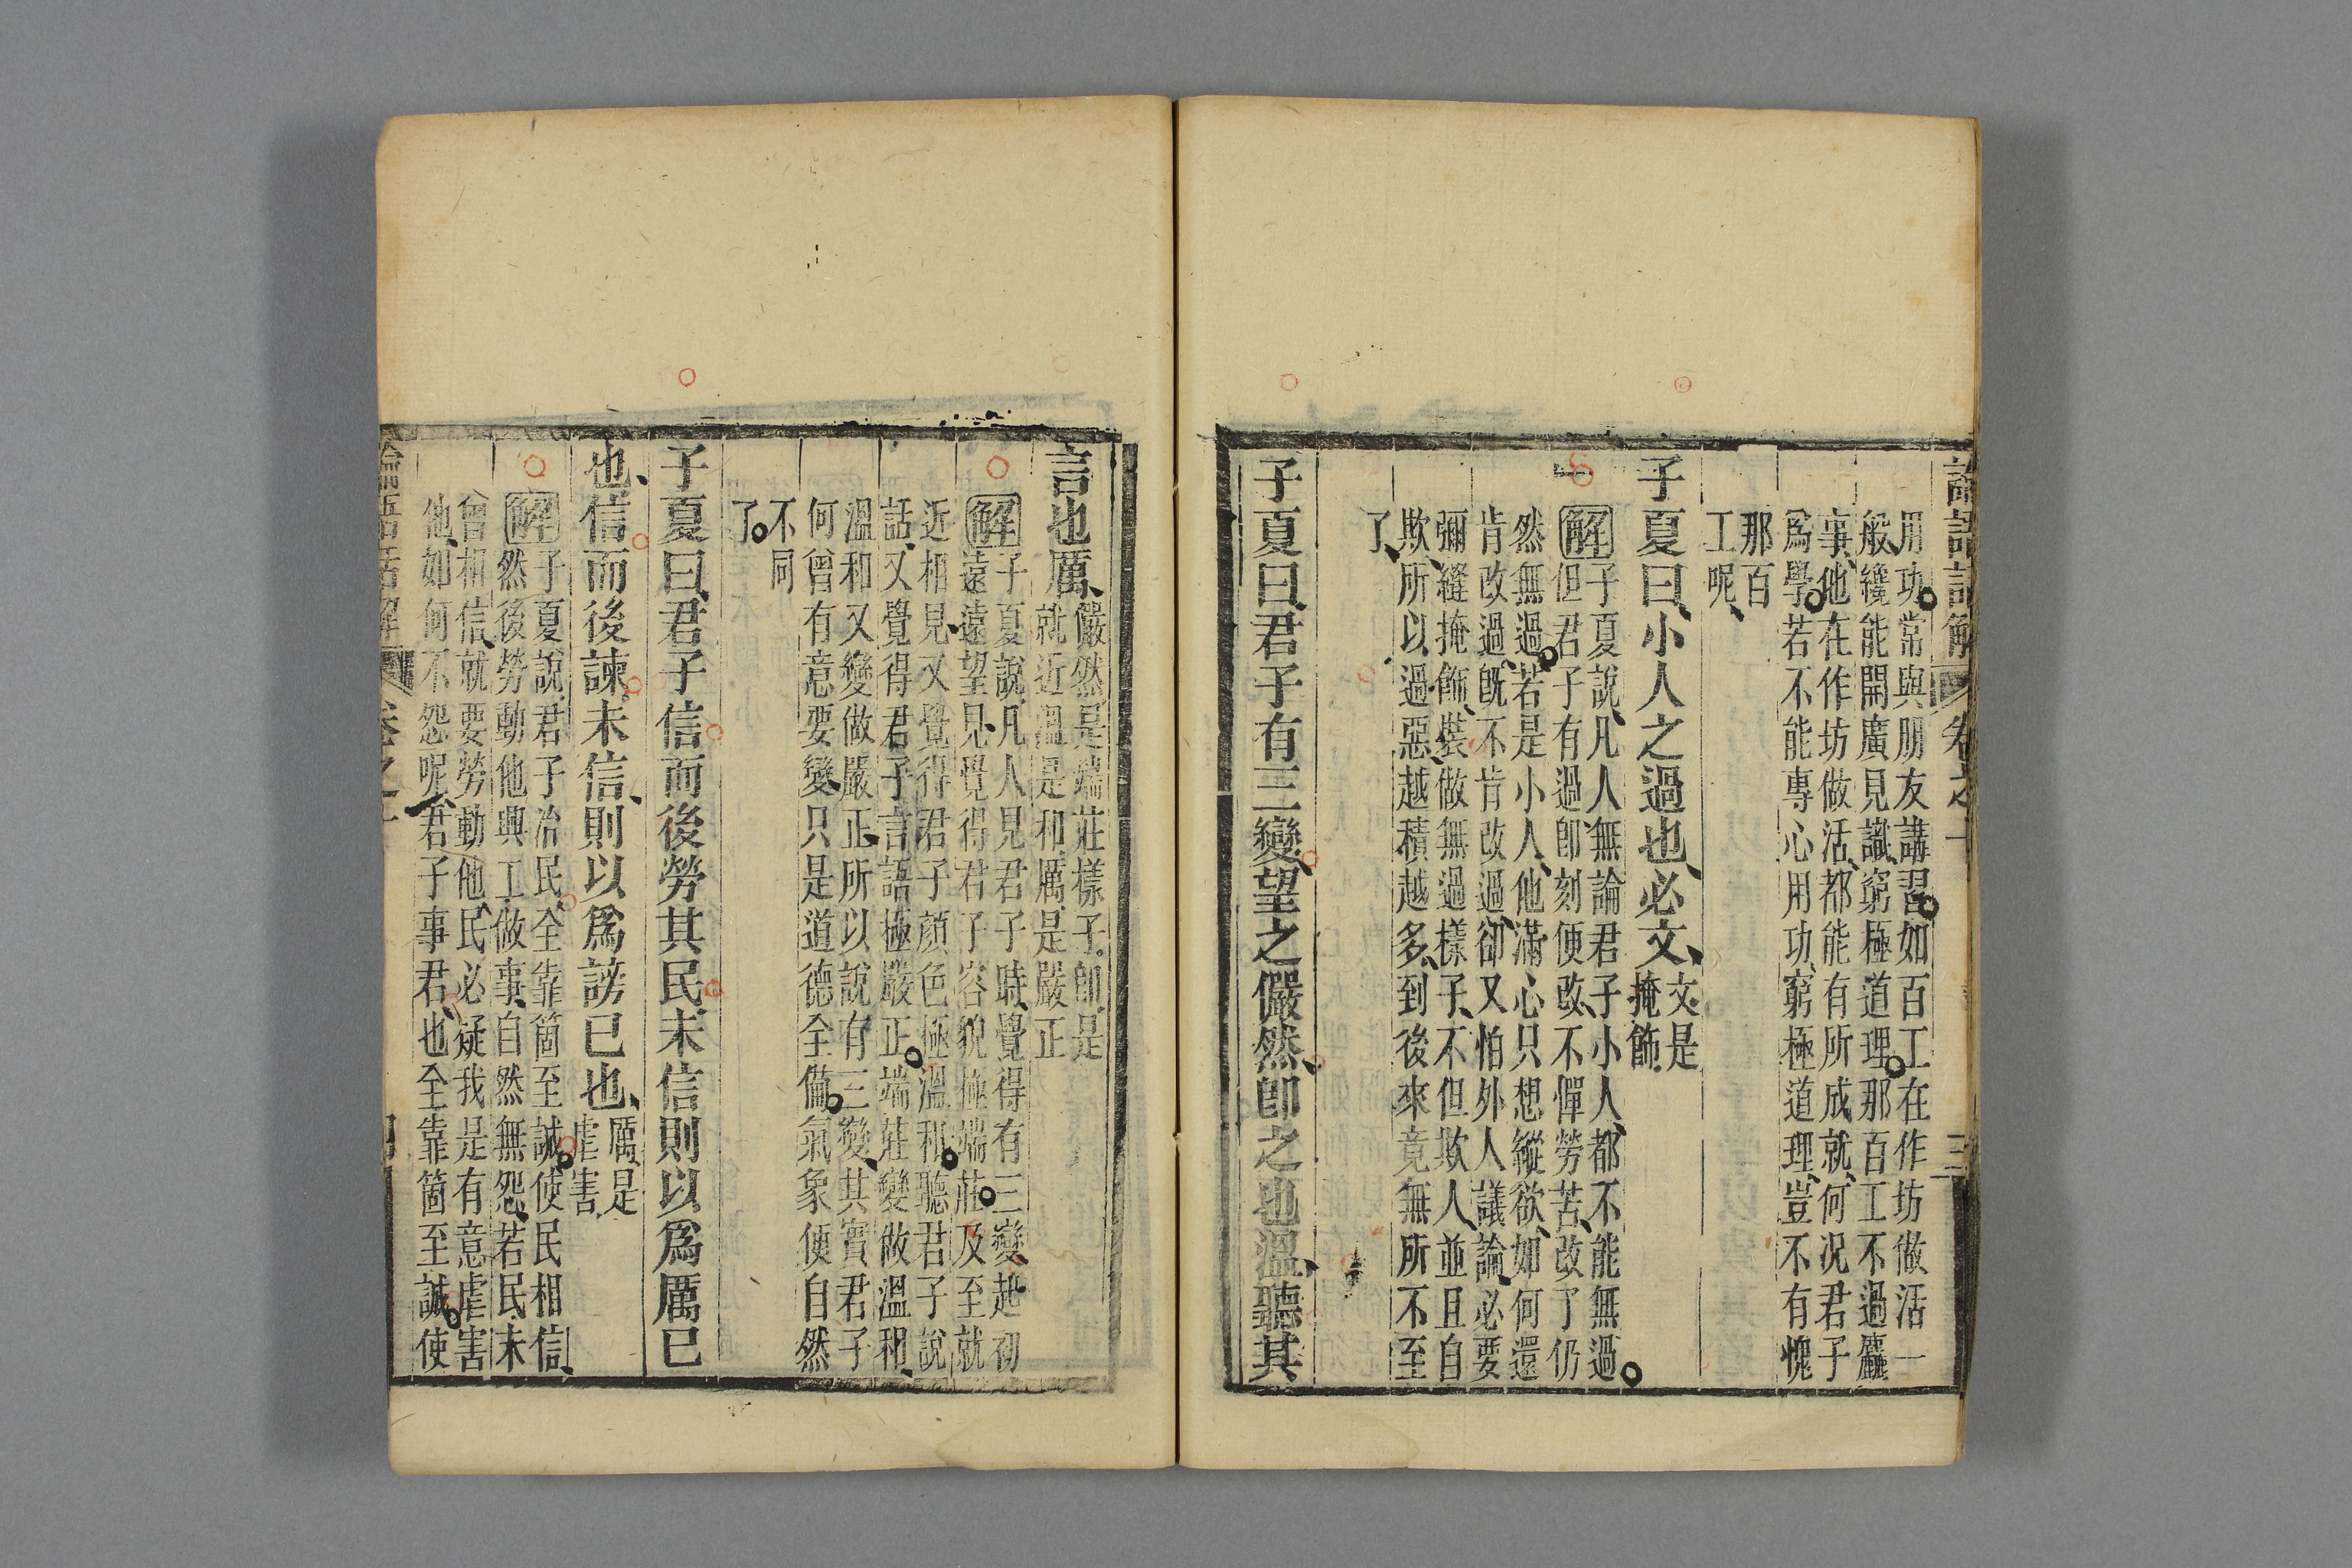 論語話解 卷之十 三
用功、常與朋友講習。如百工在作坊做活一
般、纔能開廣見識、窮極道理。那百工不過麤
事、他在作坊做活、都能有所成就、何况君子
爲學。若不能專心用功、窮極道理、豈不有愧
那百
工呢、
子夏曰、小人之過也、必文、文是
掩飾、
解 子夏說、凡人無論君子小人、都不能無過。
但君子有過卽刻便改、不憚勞苦、改了仍
然無過。若是小人、他滿心只想縱欲、如何還
肯改過、旣不肯改過、卻又怕外人議論、必要
彌縫掩飾、裝做無過樣子、不但欺人、並且自
欺、所以過惡、越積越多、到後來竟無所不至
了、
子夏曰、君子有三變、望之儼然、卽之也溫、聽其
言也厲、儼然、是端莊樣子、卽、是
就近、溫是和、厲、是嚴正
解 子夏說、凡人見君子時、覺得有三變、起初
遠遠望見、覺得君子容貌極端莊。及至就
近相見、又覺得君子顏色極溫和。聽君子說
話、又覺得君子言語極嚴正。端莊變做溫和、
溫和又變做嚴正、所以說有三變、其實君子
何曾有意要變、只是道德全備。氣象便自然
不同
了。
子夏曰、君子信而後勞其民、未信則以爲厲己
也、信而後諫、未信、則以爲謗己也、厲、是
虐害、
解 子夏說、君子治民、全靠箇至誠。使民相信、
然後勞動他興工做事、自然無怨、若民未
曾相信、就要勞動他、民必疑我是有意虐害
他、如何不怨呢、君子事君、也全靠箇至誠。使
論語話解 卷之十 四